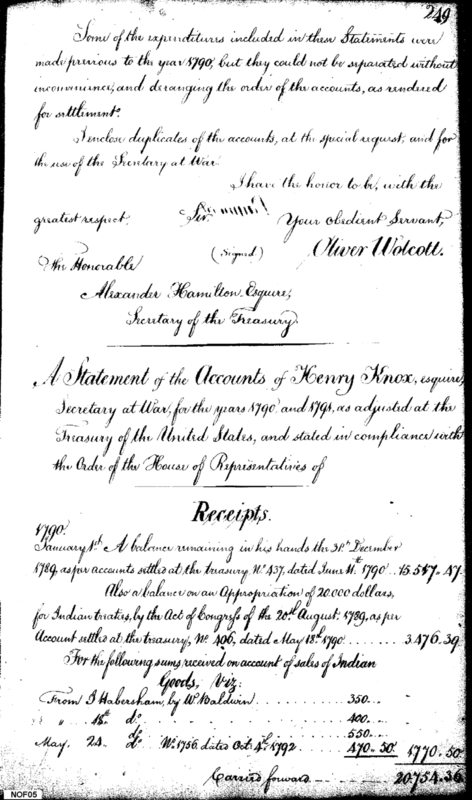 249
Some of the expenditures included in these Statements were
made previous to the year 1790, but they could not be separated without
inconvenience, and deranging the order of the accounts, as rendered
for settlement.
I enclose duplicates of the accounts, at the special request, and for
the use of the Secretary at War.
I have the honor to be, with the
greatest respect. Sir Your obedient Servant,
(Signed) Oliver Wolcott.
The Honorable
Alexander Hamilton Esquire,
Secretary of the Treasury.
A Statement of the Accounts of Henry Knox, esquire,
Secretary at War, for the years 1790 and 1791, as adjusted at the
Treasury of the United States, and stated in compliance with
the Order of the House of Representatives of
Receipts.
1790.
January 1st A balance remaining in his hands the 31st December
1789, as per accounts settled at the treasury No 437, dated June 11th 1790 15.557.47.
Also a balance on an Appropriation of 20.000 dollars,
for Indian treaties, by the Act of Congress of the 20th August 1789, as per
Account settled at the treasury, No 406, dated May 18th 1790 3.476.39.
For the following sums received on account of sales of Indian
Goods, Viz:
From J Habersham, by W. Baldwin 350
" 18th do 400
550
May 24 do No 1756 dated Oct 4th 1792 470.50. 1770.50
Carried forward 20.754.36
NOF05